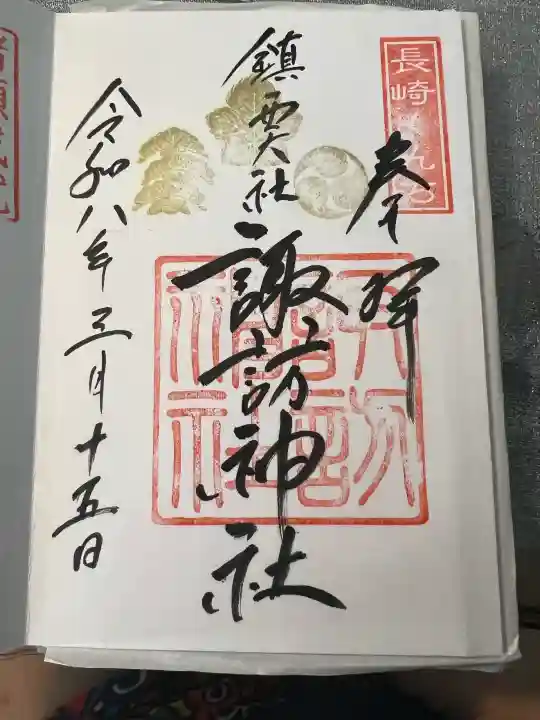 奉拝
鎮西大社
諏訪神社
令和八年三月十五日
長崎